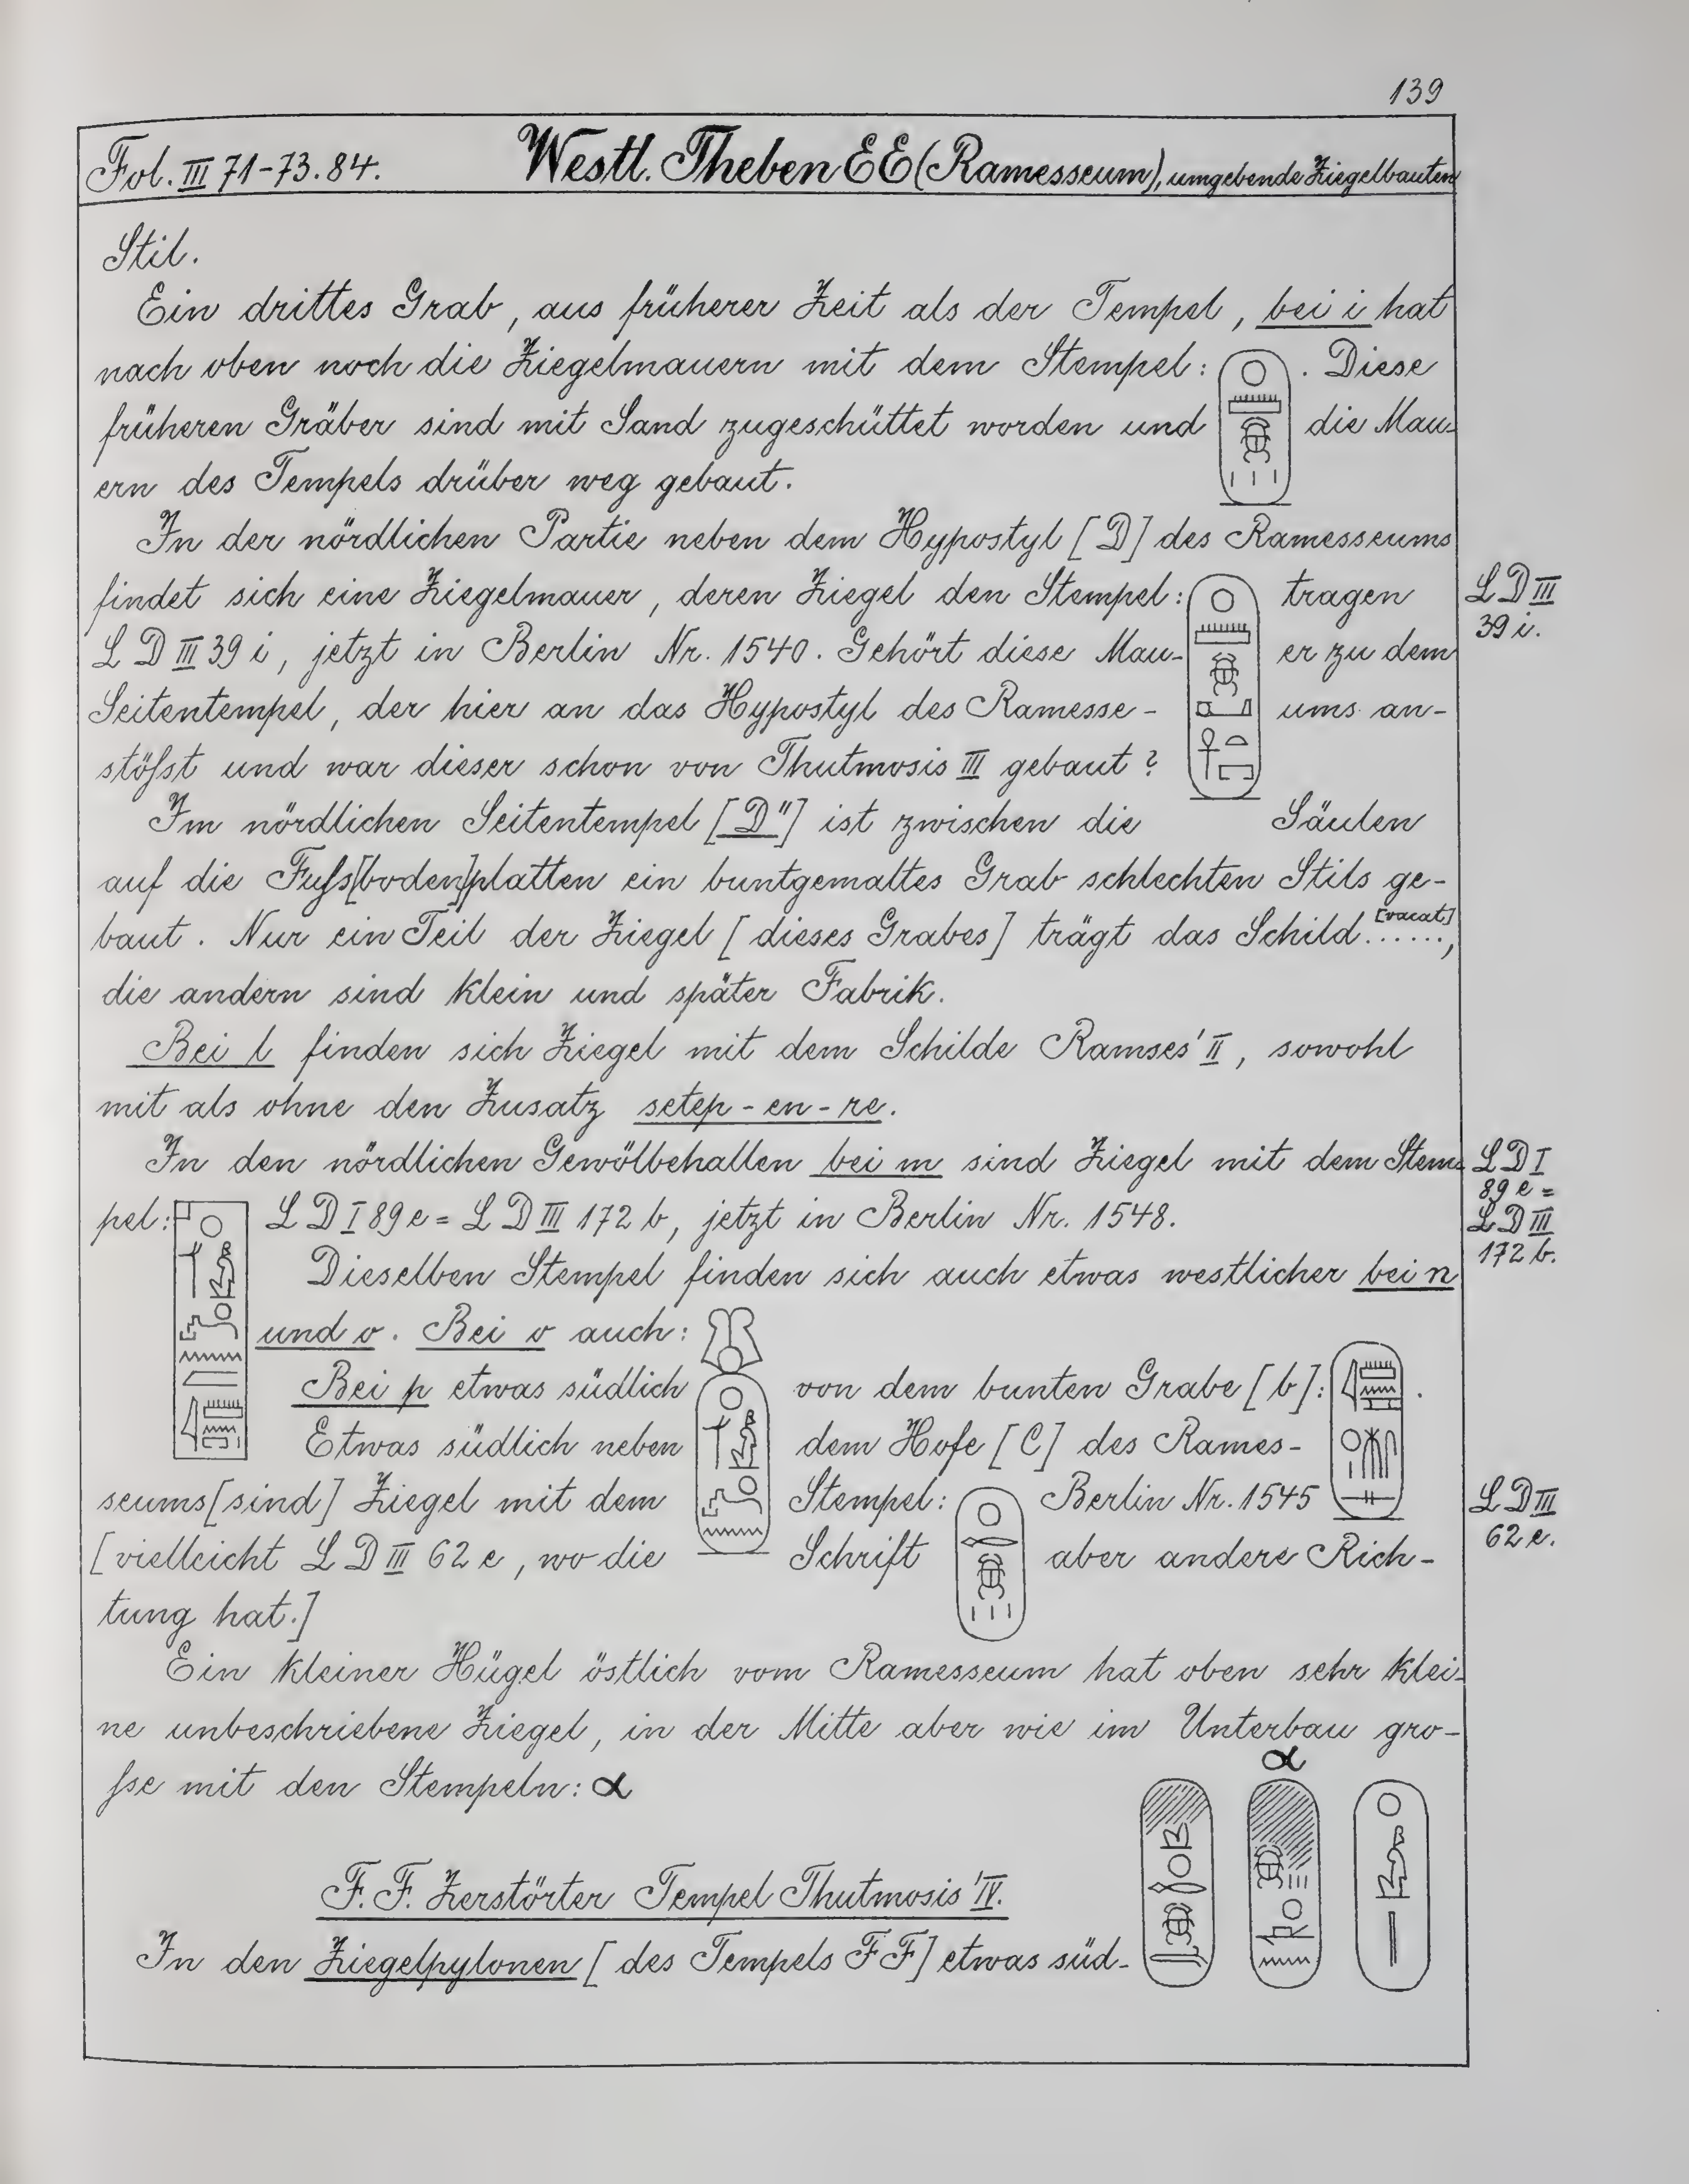 139
Fol. III 71-73. 84. Westl. Theben EE (Ramesseum), umgebende Ziegelbauten
Stil.
Ein drittes Grab, aus früherer Zeit als der Tempel, bei i hat
nach oben noch die Ziegelmauern mit dem Stempel: . Diese
früheren Gräber sind mit Sand zugeschüttet worden und die Mau-
ern des Tempels drüber weg gebaut.
In der nördlichen Partie neben dem Hypostyl [D] des Ramesseums
findet sich eine Ziegelmauer, deren Ziegel den Stempel: tragen
LD III 39 i, jetzt in Berlin Nr. 1540. Gehört diese Mau- er zu dem
Seitentempel, der hier an das Hypostyl des Ramesse- ums an-
stöſst und war dieser schon von Thutmosis III gebaut?
Im nördlichen Seitentempel [D"] ist zwischen die Säulen
auf die Fuſs[boden]platten ein buntgemaltes Grab schlechten Stils ge-
baut. Nur ein Teil der Ziegel [dieses Grabes] trägt das Schild......[vacat],
die andern sind klein und später Fabrik.
Bei l finden sich Ziegel mit dem Schilde Ramses' II, sowohl
mit als ohne den Zusatz setep-en-re.
In den nördlichen Gewölbehallen bei m sind Ziegel mit dem Stem-
pel: LD I 89 e = LD III 172 b, jetzt in Berlin Nr. 1548.
Dieselben Stempel finden sich auch etwas westlicher bei n
und o. Bei o auch:
Bei p etwas südlich von dem bunten Grabe [b]: .
Etwas südlich neben dem Hofe [C] des Rames-
seums [sind] Ziegel mit dem Stempel: Berlin Nr. 1545
[vielleicht LD III 62 e, wo die Schrift aber andere Rich-
tung hat.]
Ein kleiner Hügel östlich vom Ramesseum hat oben sehr klei-
ne unbeschriebene Ziegel, in der Mitte aber wie im Unterbau gro-
ſse mit den Stempeln: α
α
F.F. Zerstörter Tempel Thutmosis' IV.
In den Ziegelpylonen [des Tempels FF] etwas süd-
LD III
39 i.
LD I
89 e =
LD III
172 b.
LD III
62 e.